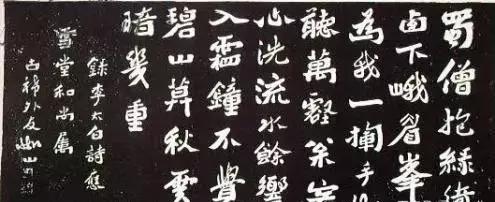 蜀僧抱綠綺
卥下峨眉峯
為我一揮手
聽萬壑枀客
心洗流水餘響
入霜鐘不覺
碧山暮秋雲
暗幾重
錄李太白詩應
雪堂和尚屬
外友山